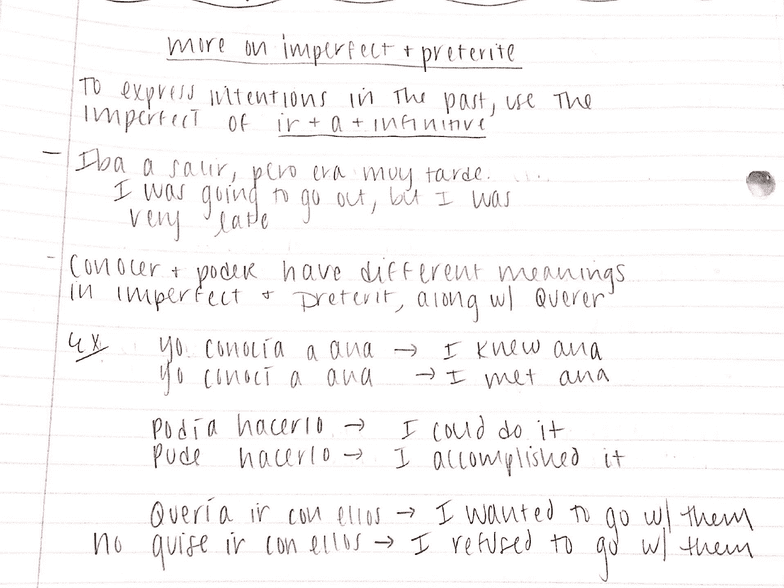 more on imperfect + preterite
To express intentions in the past, use the
imperfect of ir + a + infinitive
- Iba a salir, pero era muy tarde.
I was going to go out, but I was
very late
- Conocer + poder have different meanings
in imperfect + preterit, along w/ Querer
ex yo conocía a ana → I knew ana
yo conocí a ana → I met ana
Podía hacerlo → I could do it
Pude hacerlo → I accomplished it
Quería ir con ellos → I wanted to go w/ them
no quise ir con ellos → I refused to go w/ them